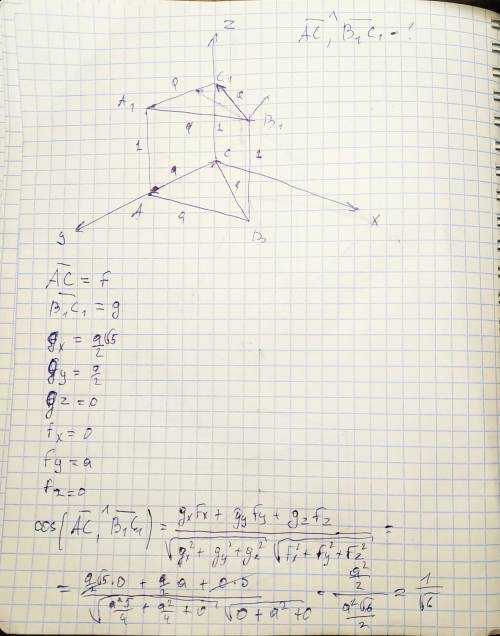 Z
AC ^, B₁C₁ - ?
C₁
a
a
A₁
a
B₁
1
1
1
C
a
a
A
a
B
y
x
AC = f
B₁C₁ = g
gx = a√5/2
gy = a/2
gz = 0
fx = 0
fy = a
fz = 0
cos(AC ^ B₁C₁) = (gx fx + gy fy + gz fz) / (√(gx² + gy² + gz²) √(fx² + fy² + fz²)) =
= (a√5/2 · 0 + a/2 · a + 0·0) / (√(a²5/4 + a²/4 + 0) √(0 + a² + 0)) = (a²/2) / (a²√6/2) = 1/√6